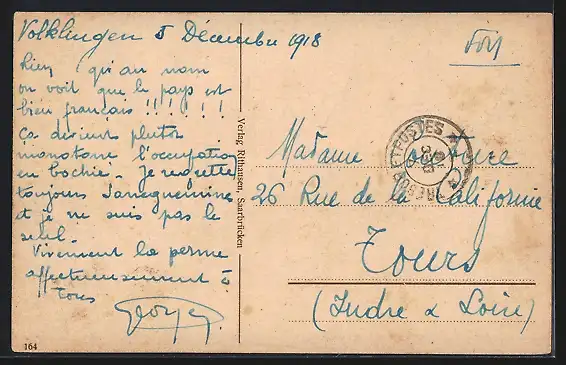 Volklingen 5 Décembre 1918
Rien qu'au nom
on voit que le pays est
bien français !!!!!!
Ca devient plutot
monotone l'occupation
en bochie. Je regrette
toujours Sarreguemine
et je ne suis pas le
seul.
Vivement la perme
affectueusement à
tous
Georges
164
Verlag Rithausen, Saarbrücken
FM
TRESOR ET POSTES
Madame
26 Rue de la Californie
Tours
(Indre & Loire)